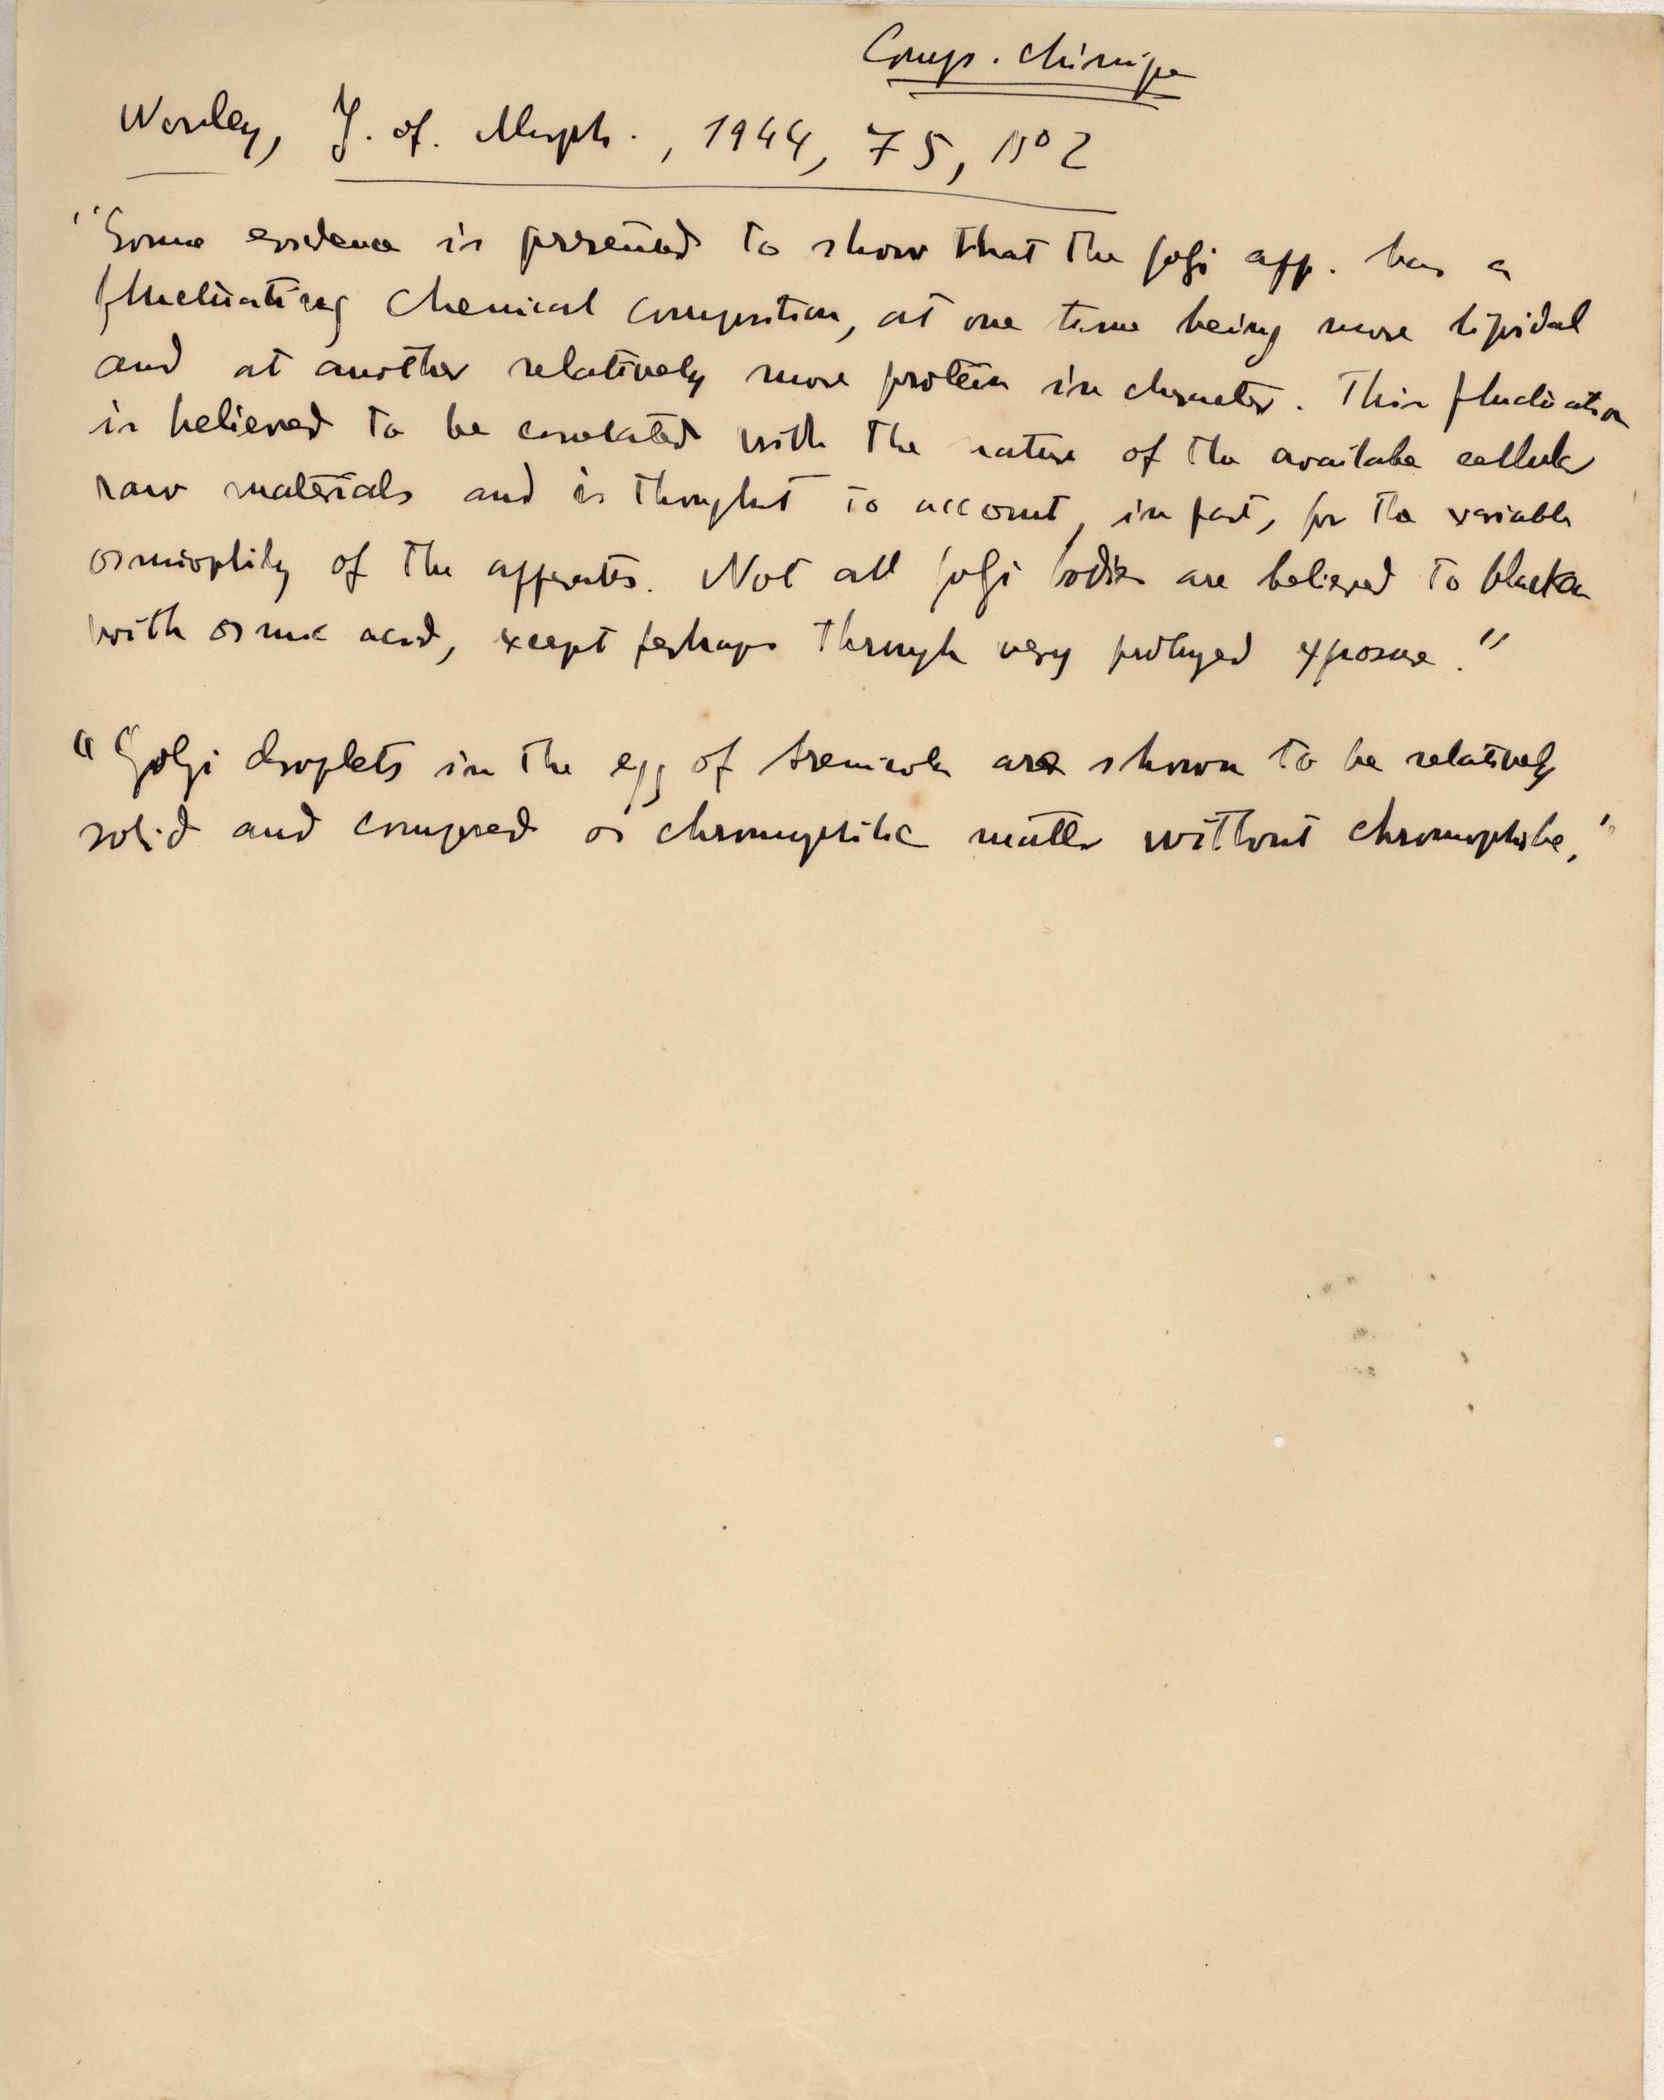 Comp. chimique
Worley, J. of. Morph., 1944, 75, No 2
"Some evidence is presented to show that the golgi app. has a
fluctuating chemical composition, at one time being more lipidal
and at another relatively more protein in character. This fluctuation
is believed to be correlated with the nature of the availabe cellular
raw materials and is thought to account, in part, for the variable
osmiophily of the apparatus. Not all golgi bodies are believed to blacken
with osmic acid, except perhaps through very prolonged exposure."
"Golgi droplets in the egg of Arenicola are shown to be relatively
solid and composed of chromophilic matter without chromophobe."